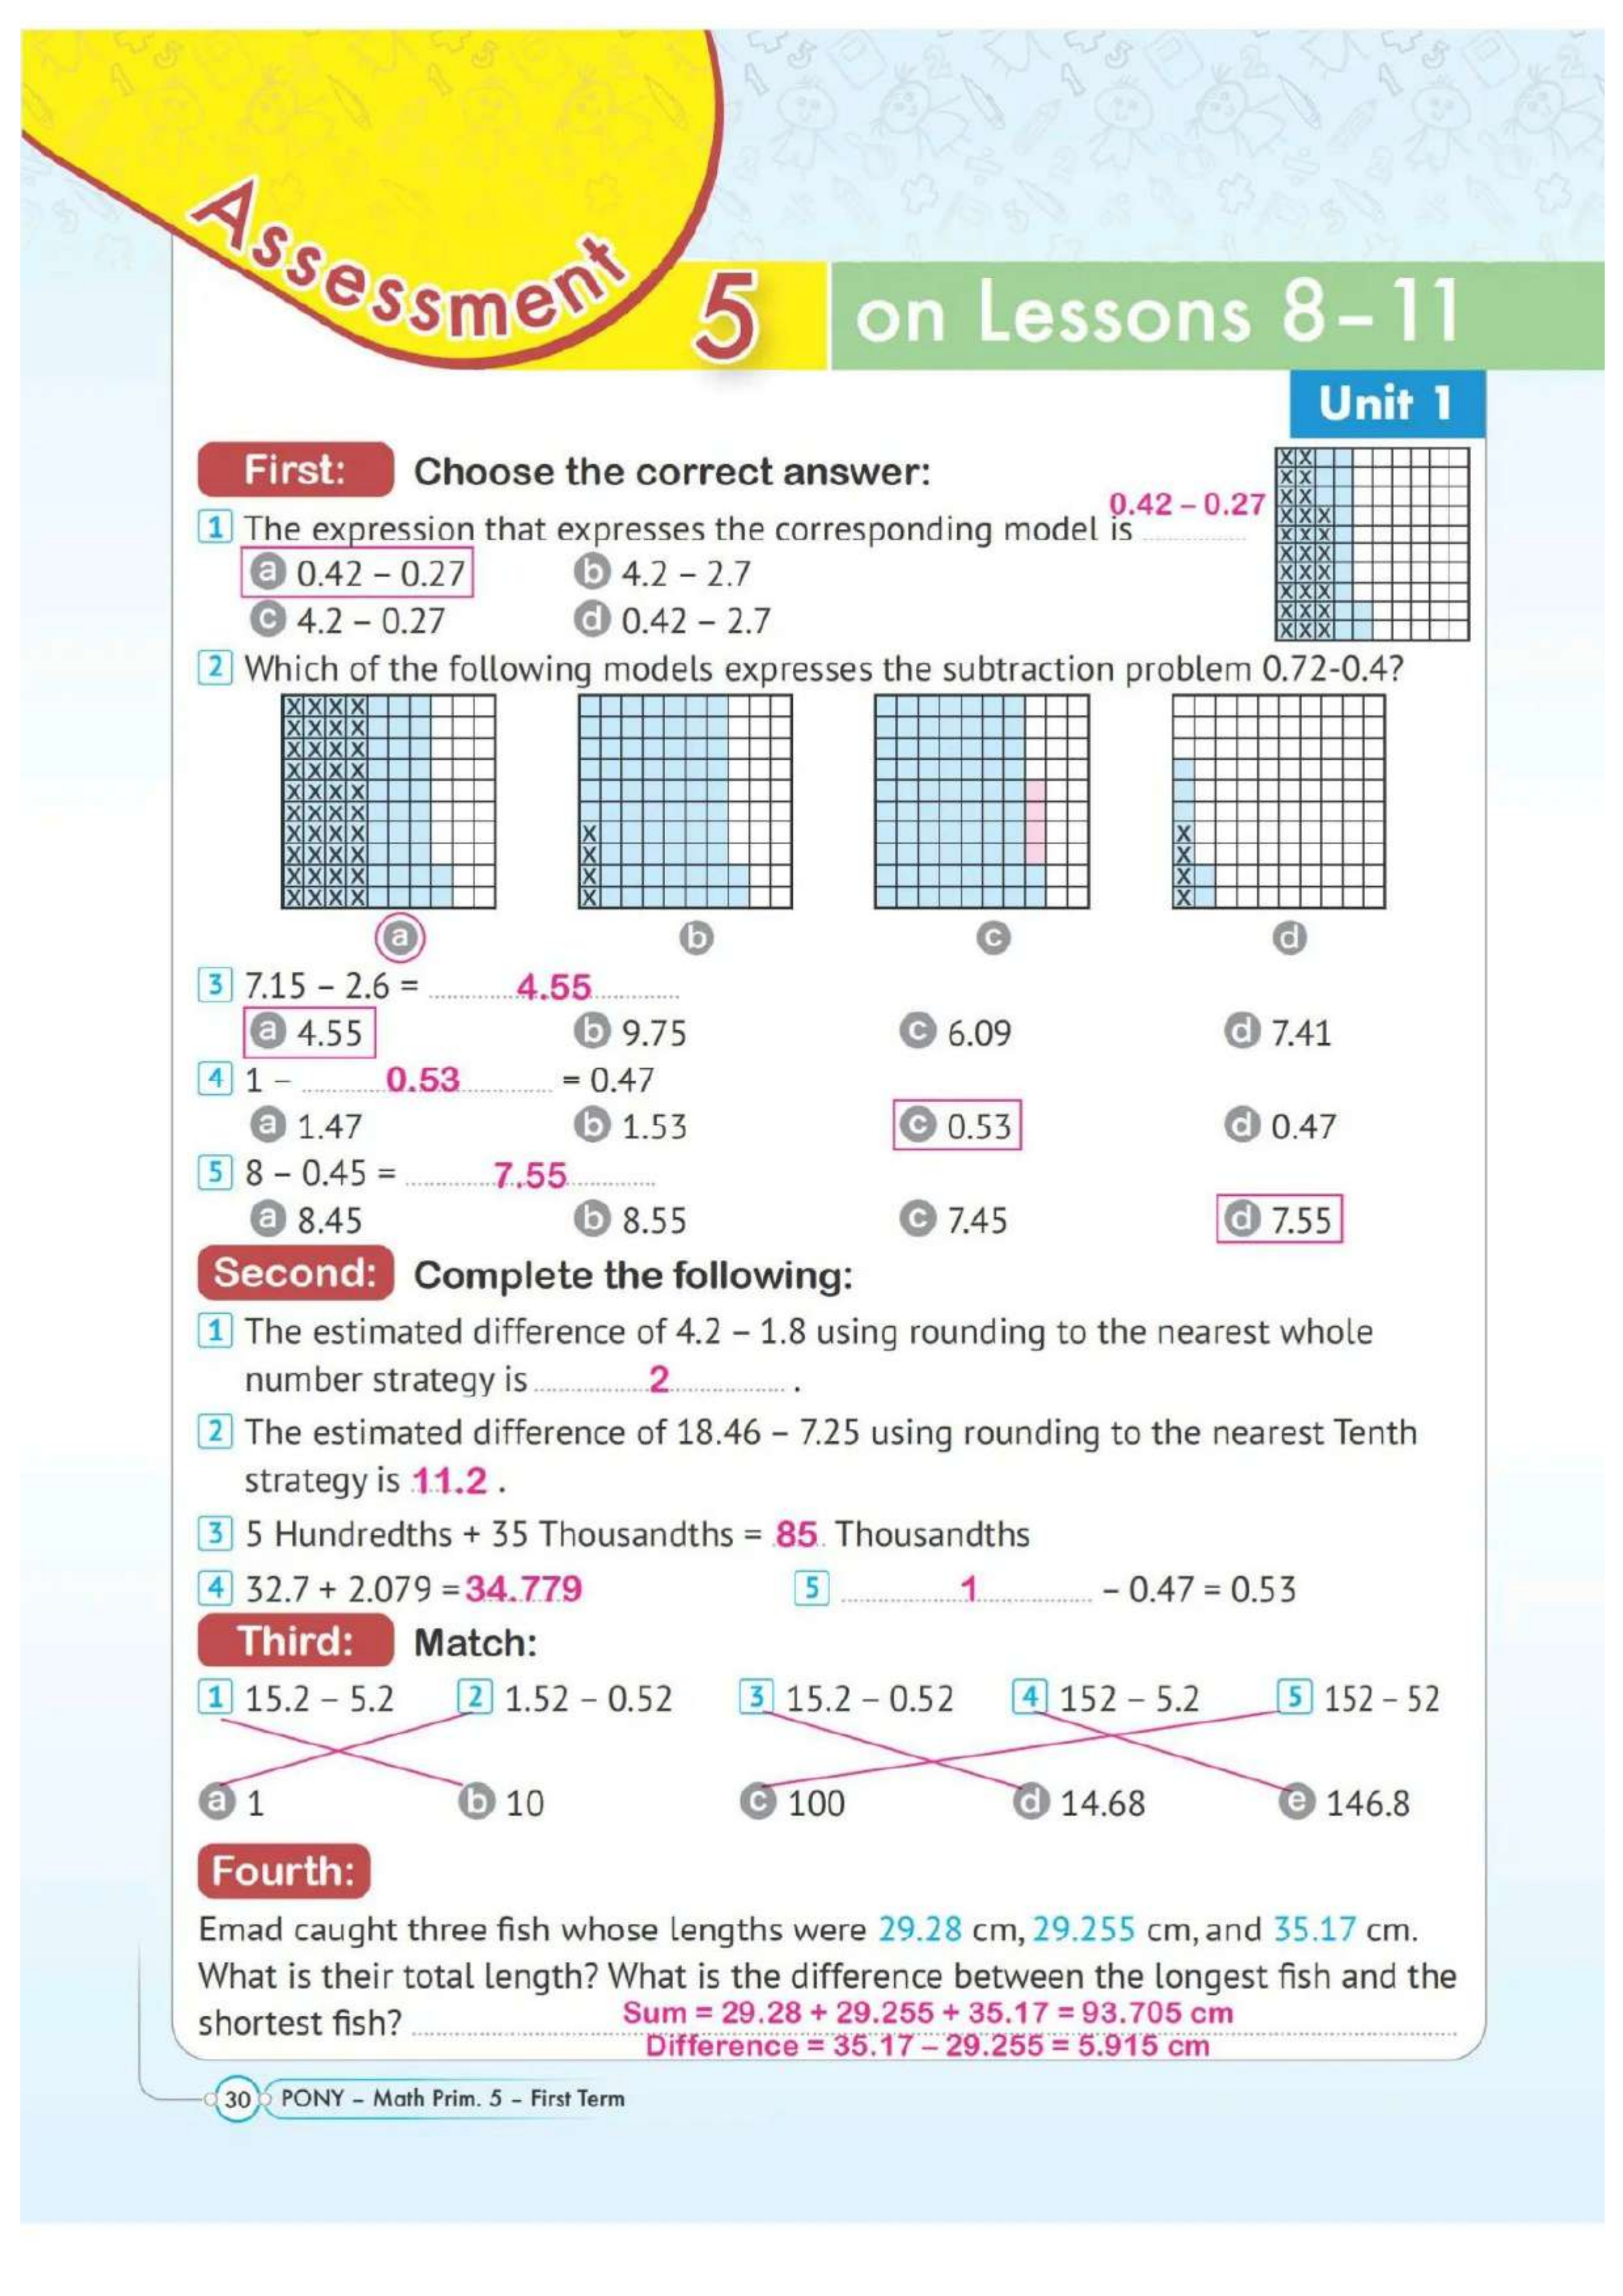 Assessment 5 on Lessons 8–11
Unit 1
First: Choose the correct answer:
1 The expression that expresses the corresponding model is 0.42 – 0.27
a 0.42 – 0.27 b 4.2 – 2.7
c 4.2 – 0.27 d 0.42 – 2.7
2 Which of the following models expresses the subtraction problem 0.72-0.4?
a b c d
3 7.15 – 2.6 = 4.55
a 4.55 b 9.75 c 6.09 d 7.41
4 1 – 0.53 = 0.47
a 1.47 b 1.53 c 0.53 d 0.47
5 8 – 0.45 = 7.55
a 8.45 b 8.55 c 7.45 d 7.55
Second: Complete the following:
1 The estimated difference of 4.2 – 1.8 using rounding to the nearest whole
number strategy is 2 .
2 The estimated difference of 18.46 – 7.25 using rounding to the nearest Tenth
strategy is 11.2 .
3 5 Hundredths + 35 Thousandths = 85 Thousandths
4 32.7 + 2.079 = 34.779 5 1 – 0.47 = 0.53
Third: Match:
1 15.2 – 5.2 2 1.52 – 0.52 3 15.2 – 0.52 4 152 – 5.2 5 152 – 52
a 1 b 10 c 100 d 14.68 e 146.8
Fourth:
Emad caught three fish whose lengths were 29.28 cm, 29.255 cm, and 35.17 cm.
What is their total length? What is the difference between the longest fish and the
shortest fish? Sum = 29.28 + 29.255 + 35.17 = 93.705 cm
Difference = 35.17 – 29.255 = 5.915 cm
30 PONY – Math Prim. 5 – First Term